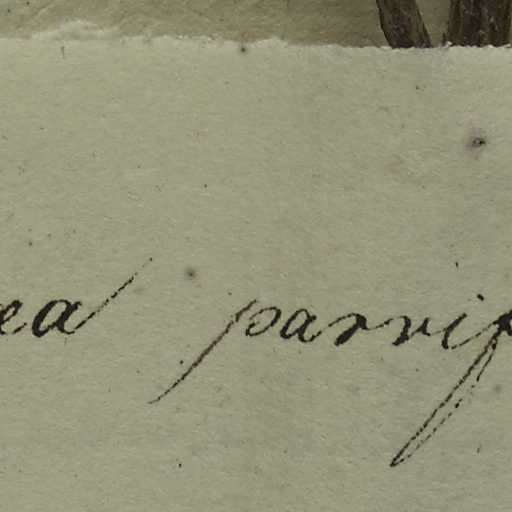 ea parvif